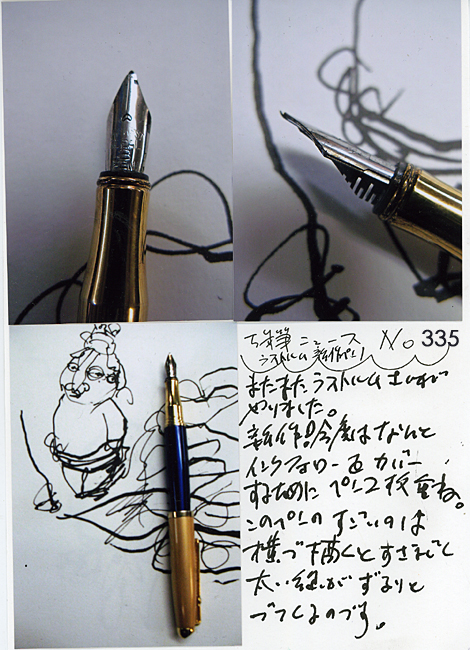 筆ニュース No 335
ラストルム 新作ペン!
またまたラストルム が
やりました。
新作!!今度はなんと
インクフローをカバー
するためにペン2枚重ね。
このペンのすごいのは
横で描くとすさまじく
太い線がずるりと
でてくるのです。